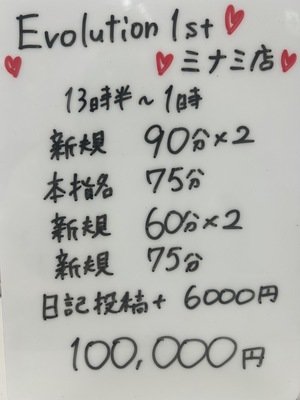 Evolution 1st
ミナミ店
13時半~1時
新規 90分×2
本指名 75分
新規 60分×2
新規 75分
日記投稿+ 6000円
100,000円